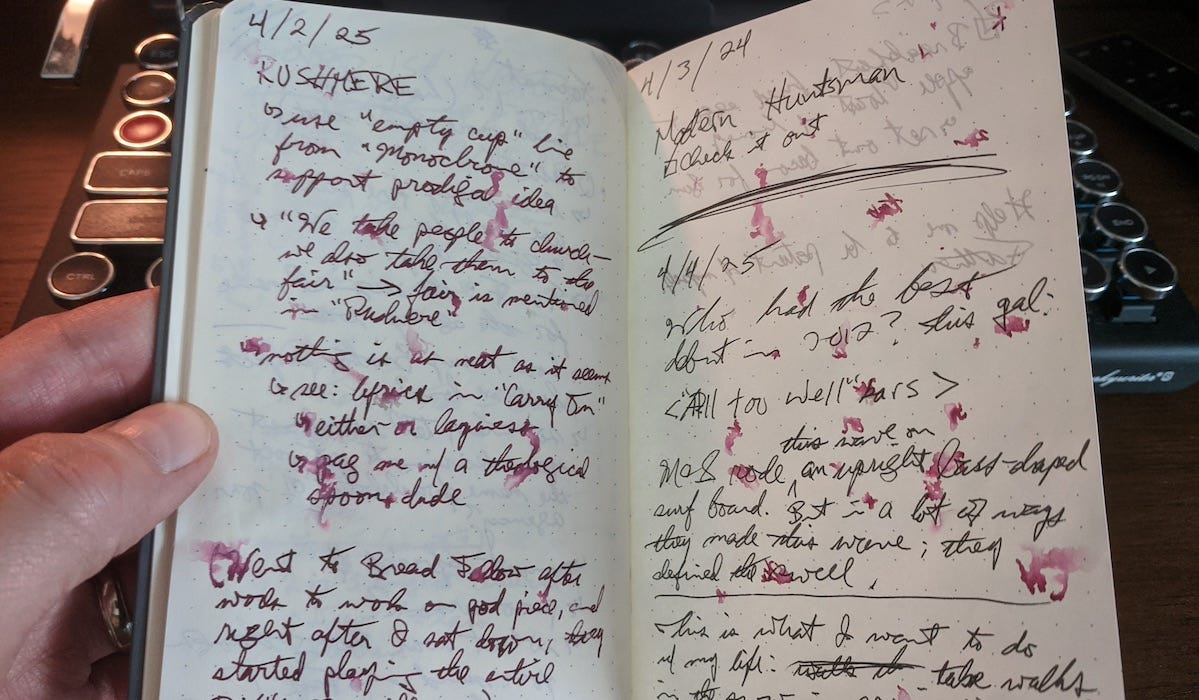 4/2/25
RUSHMERE
↳ use "empty cup" line
from "Monochrome" to
support prodigal idea
↳ "We take people to church –
we also take them to the
fair" → fair is mentioned
in "Rushmere"
nothing is as neat as it seems
↳ see: lyrics in "Carry On"
either or laziness
↳ gag me w/ a theological
spoon, dude
Went to Bread & after
work to work on pod piece, and
right after I sat down, they
started playing the entire
4/3/24
Modern Huntsman
check it out
4/4/25
Who had the best
debut in 2012? This gal:
<"All too well" bars>
this wave on
M&S rode an upright bass-shaped
surf board. But in a lot of ways
they made this wave; they
defined the swell.
This is what I want to do
w/ my life: take walks
in the
CAPS
CTRL